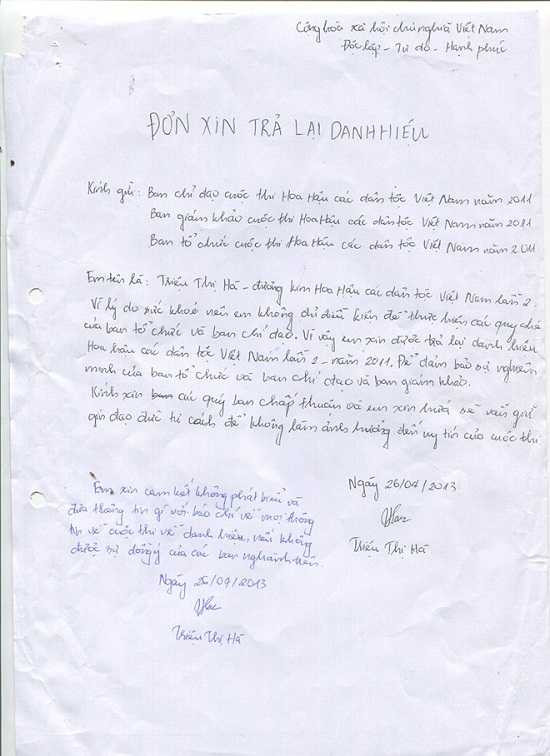 Cộng hòa xã hội chủ nghĩa Việt Nam
Độc lập - Tự do - Hạnh phúc
ĐƠN XIN TRẢ LẠI DANH HIỆU
Kính gửi: Ban chỉ đạo cuộc thi Hoa Hậu các dân tộc Việt Nam năm 2011
Ban giám khảo cuộc thi Hoa Hậu các dân tộc Việt Nam năm 2011
Ban tổ chức cuộc thi Hoa Hậu các dân tộc Việt Nam năm 2011
Em tên là: Triệu Thị Hà - đương kim Hoa Hậu các dân tộc Việt Nam lần 2.
Vì lý do sức khoẻ nên em không đủ điều kiện để thực hiện các quy chế
của ban tổ chức và ban chỉ đạo. Vì vậy em xin được trả lại danh hiệu
Hoa hậu các dân tộc Việt Nam lần 2 - năm 2011. Để đảm bảo sự nghiêm
minh của ban tổ chức và ban chỉ đạo và ban giám khảo.
Kính xin các quý ban chấp thuận và em xin hứa sẽ vẫn giữ
gìn đạo đức tư cách để không làm ảnh hưởng đến uy tín của cuộc thi
Ngày 26/07/2013
Triệu Thị Hà
Em xin cam kết không phát biểu và
đưa thông tin gì với báo chí về mọi thông
tin về cuộc thi về danh hiệu, nếu không
được sự đồng ý của các ban nghành trên.
Ngày 26/07/2013
Triệu Thị Hà